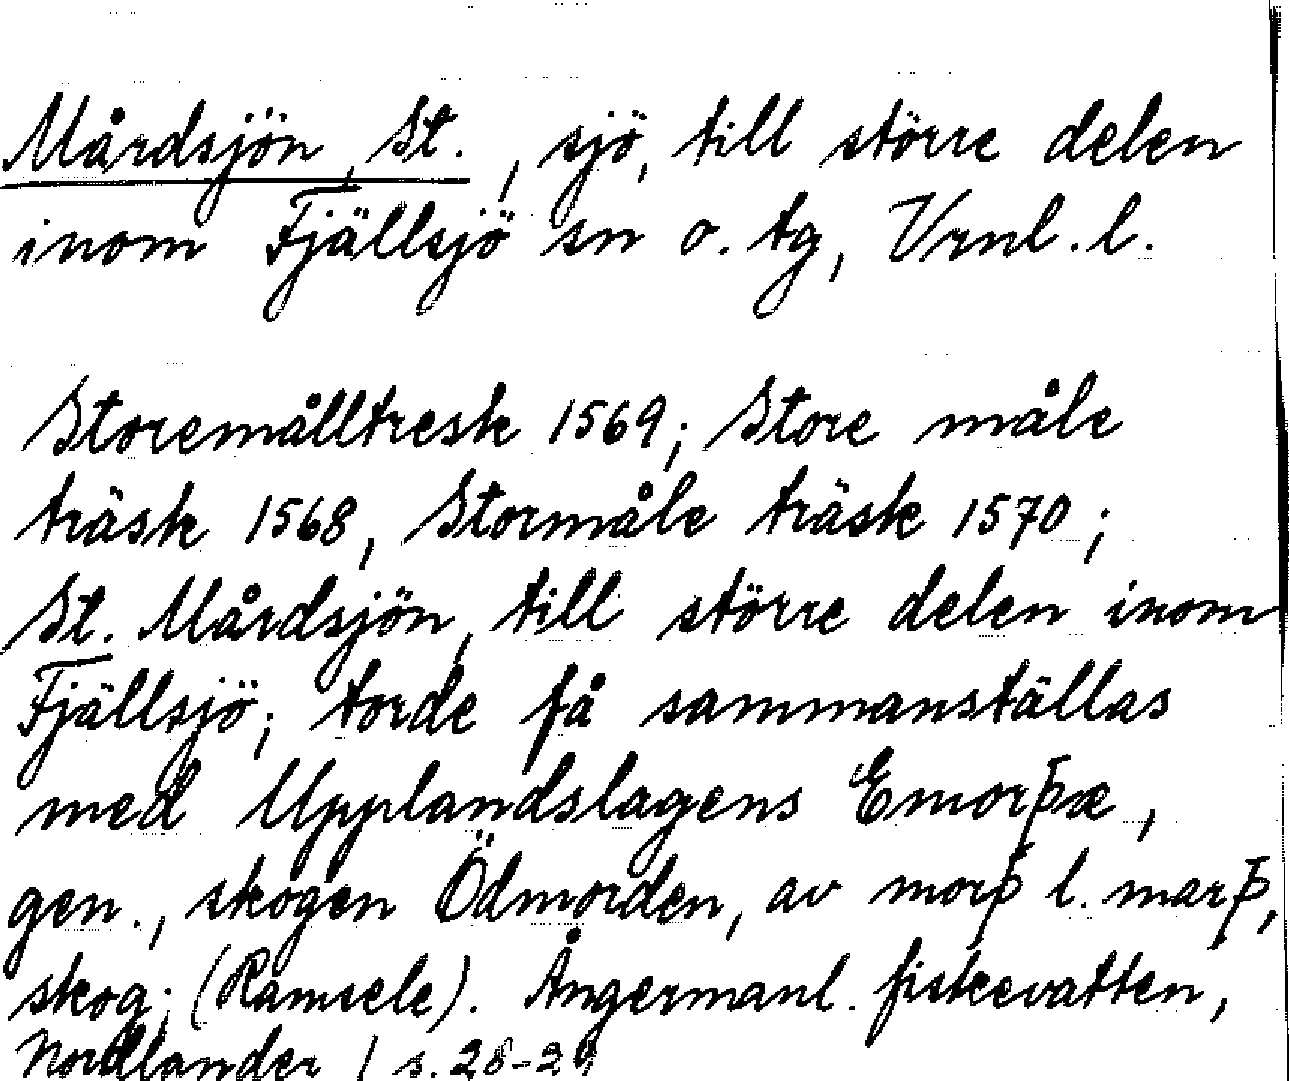 Mårdsjön, St., sjö, till större delen
inom Fjällsjö sn o. tg, Vrnl. l.
Storemålltresk 1569; Store måle
träsk 1568, Stormåle träsk 1570;
St. Mårdsjön, till större delen inom
Fjällsjö; torde få sammanställas
med Upplandslagens Emorþæ,
gen., skogen Ödmorden, av morþ l. marþ,
skog; (Ramsele). Ångermanl. fiskevatten,
Nordlander I s. 28-29